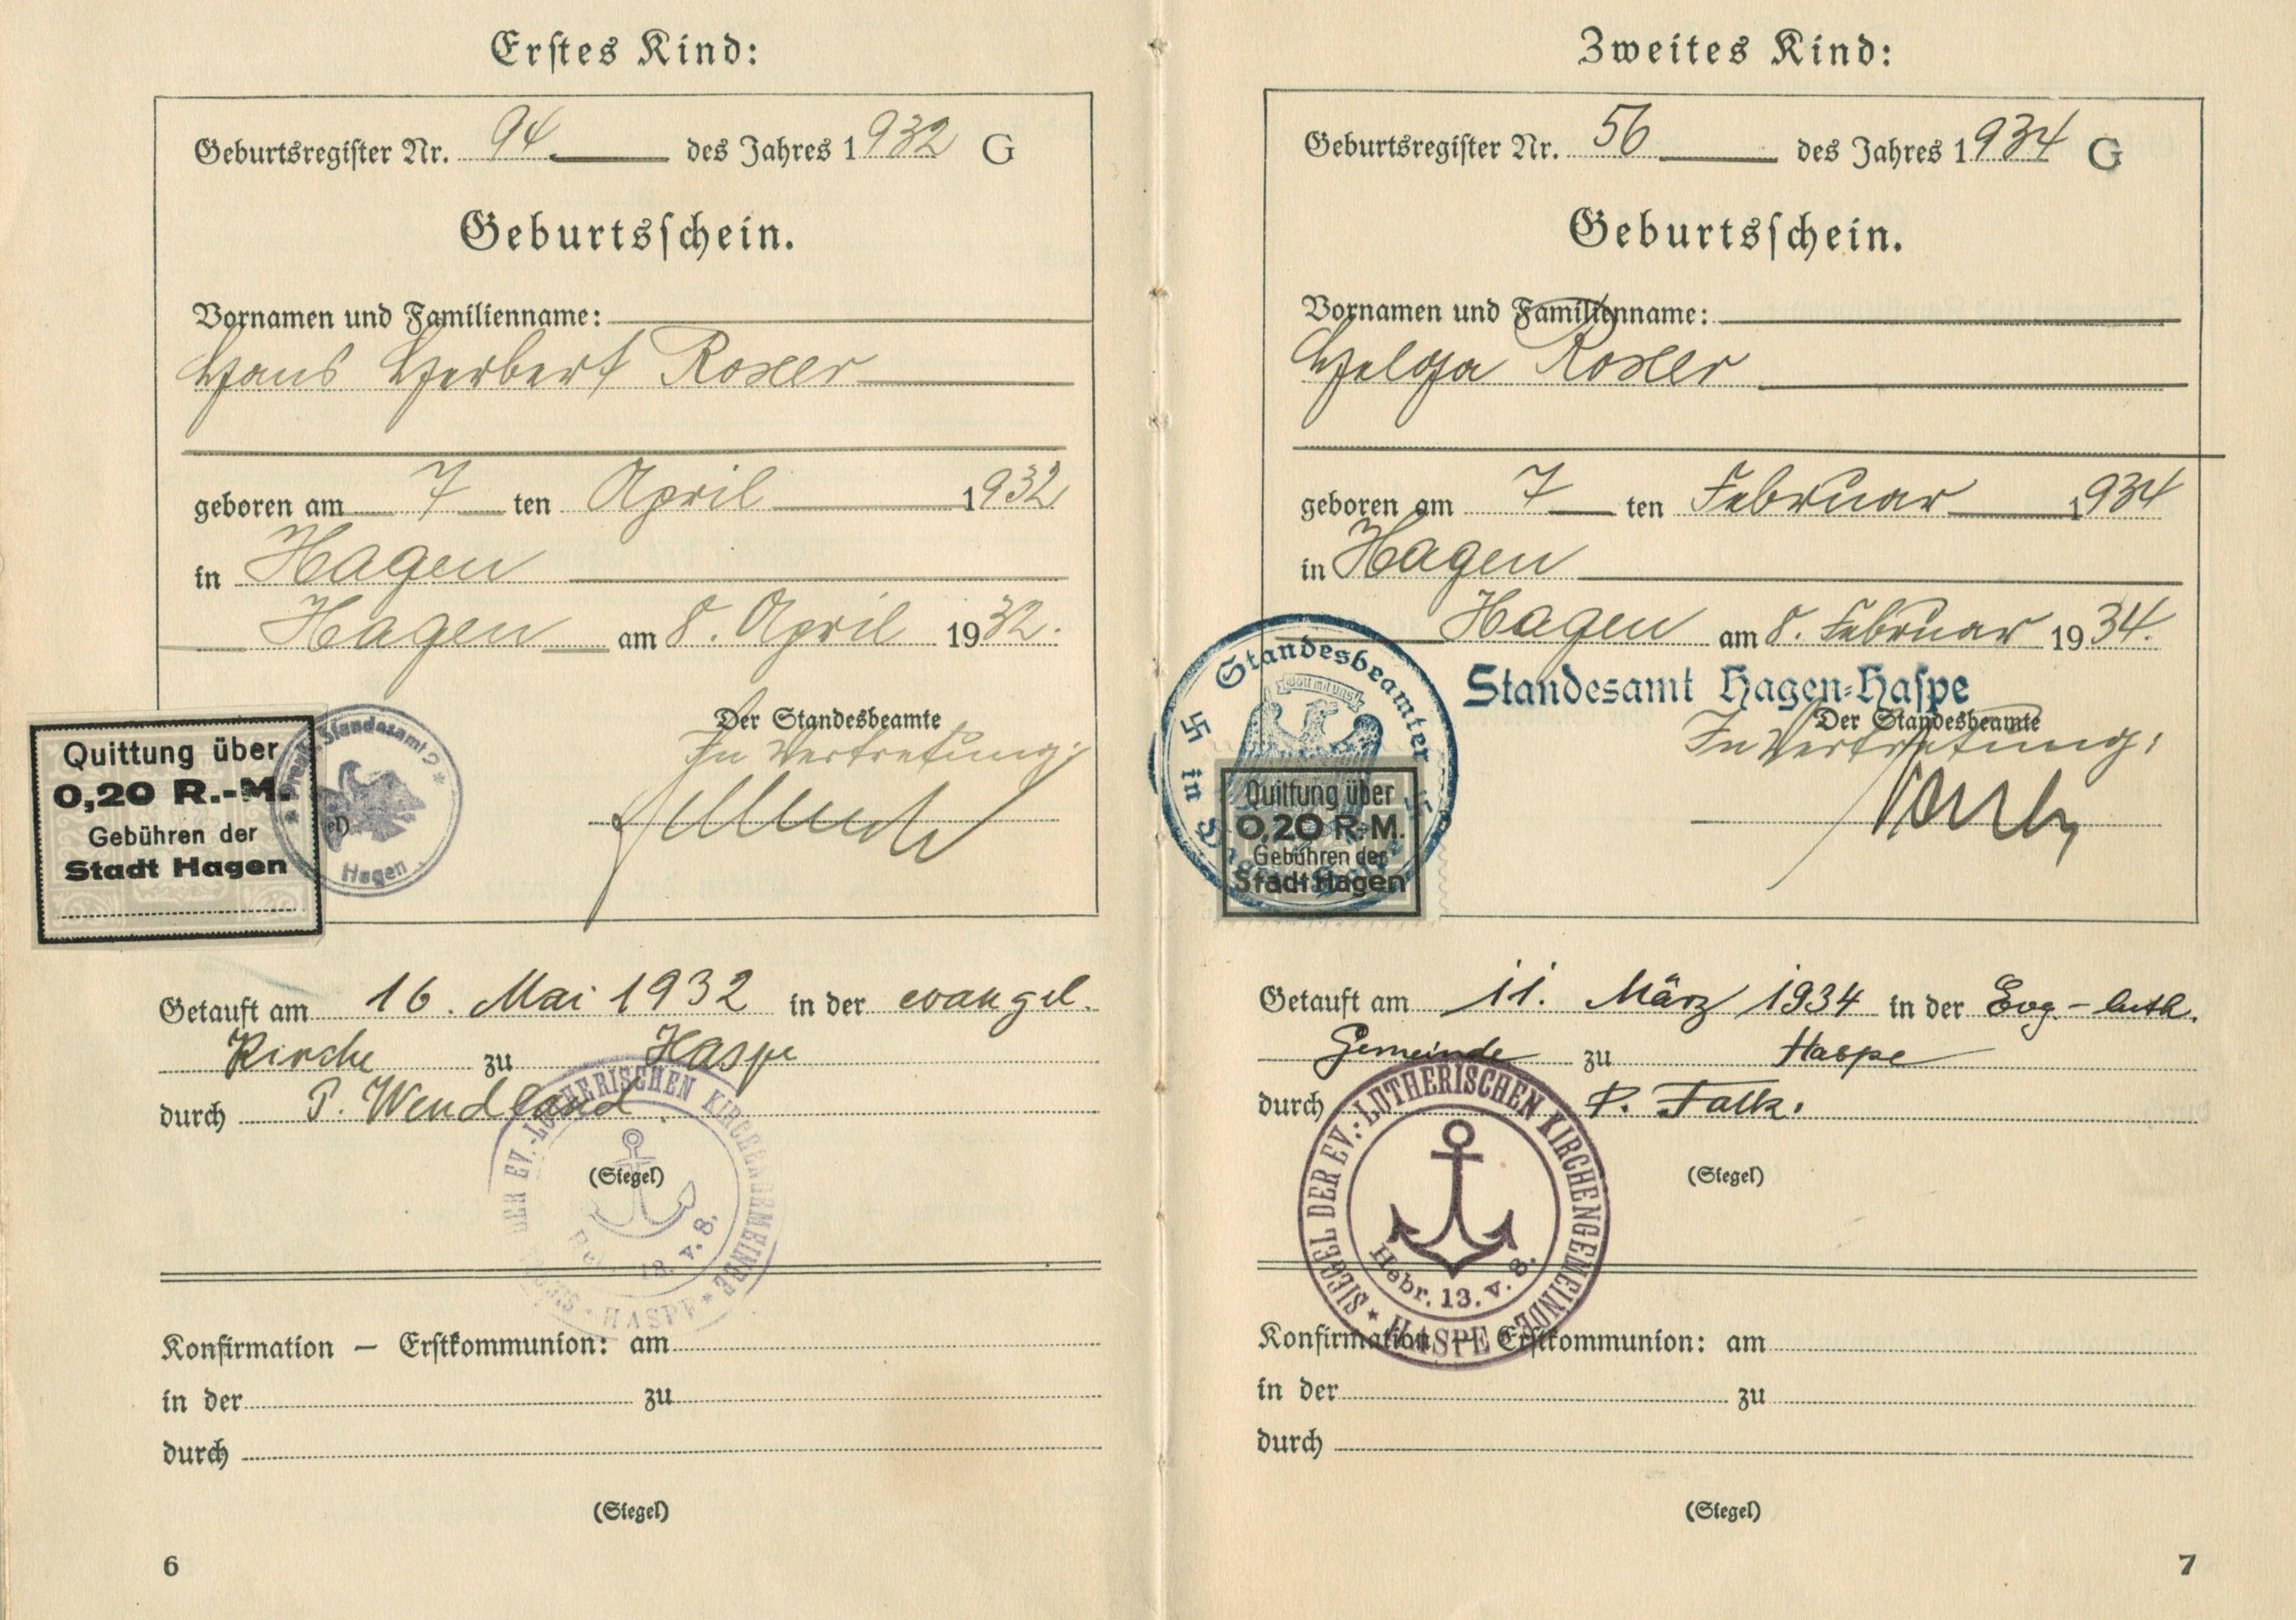 Erstes Kind:
Geburtsregister Nr. 94 des Jahres 1932 G
Geburtsschein.
Vornamen und Familienname:
Hans Herbert
geboren am 7 ten April 1932
in Hagen
Hagen am 8. April 1932.
Der Standesbeamte
In Vertretung:
Quittung über
0,20 R.-M.
Gebühren der
Stadt Hagen
Standesamt 2
Hagen
Getauft am 16. Mai 1932 in der evangel.
Kirche zu Haspe
durch P. Wendland
(Siegel)
DER EV.-LUTHERISCHEN KIRCHENGEMEINDE * HASPE *
v. 8.
Konfirmation — Erstkommunion: am
in der zu
durch
(Siegel)
6
Zweites Kind:
Geburtsregister Nr. 56 des Jahres 1934 G
Geburtsschein.
Vornamen und Familienname:
Helga
geboren am 7 ten Februar 1934
in Hagen
Hagen am 8. Februar 1934.
Standesamt Hagen-Haspe
Der Standesbeamte
In Vertretung:
Standesbeamter
Gott mit uns
in
Quittung über
0,20 R.-M.
Gebühren der
Stadt Hagen
Getauft am 11. März 1934 in der Evg.-luth.
Gemeinde zu Haspe
durch P. Falk.
(Siegel)
SIEGEL DER EV.-LUTHERISCHEN KIRCHENGEMEINDE * HASPE *
Hebr. 13. v. 8.
Konfirmation — Erstkommunion: am
in der zu
durch
(Siegel)
7